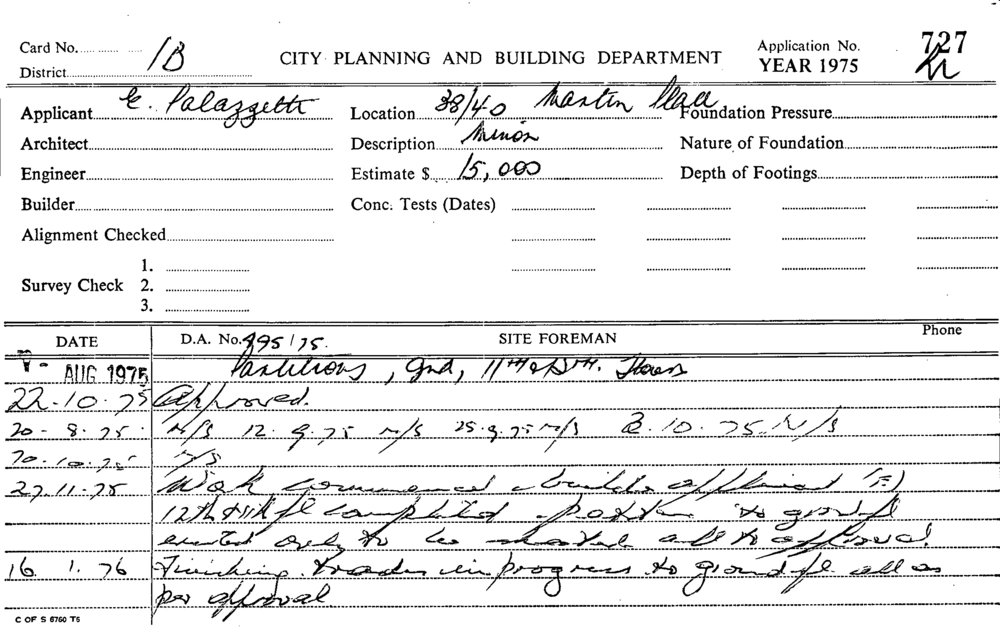 Card No. 1B CITY PLANNING AND BUILDING DEPARTMENT Application No. 727
District YEAR 1975
Applicant E. Palazzetti Location 38/40 Martin Place Foundation Pressure
Architect Description Minor Nature of Foundation
Engineer Estimate $ 15,000 Depth of Footings
Builder Conc. Tests (Dates)
Alignment Checked
1.
Survey Check 2.
3.
DATE D.A. No. 495/75. SITE FOREMAN Phone
AUG 1975 Partitions, Gnd, 11th & 12th. Floors
22.10.75 Approved.
20.8.75. N/S 12.9.75 N/S 25.9.75 N/S 2.10.75. N/S
20.10.75 N/S
27.11.75 Work commenced
12th & 11th fl completed to ground fl
erected only to be all to approval.
16.1.76 Finishing trades in progress to ground fl all as
per approval
C OF S 6760 T6